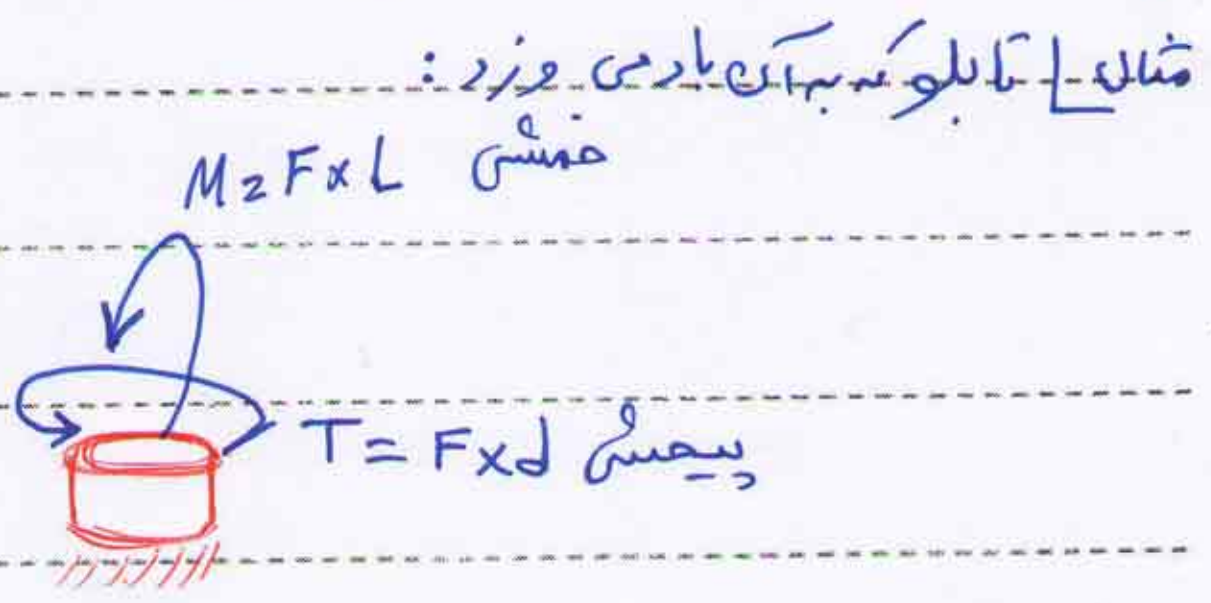 مثال | تابلو که به آن باد می وزد :
M = F x L خمشی
T = F x d پیچشی